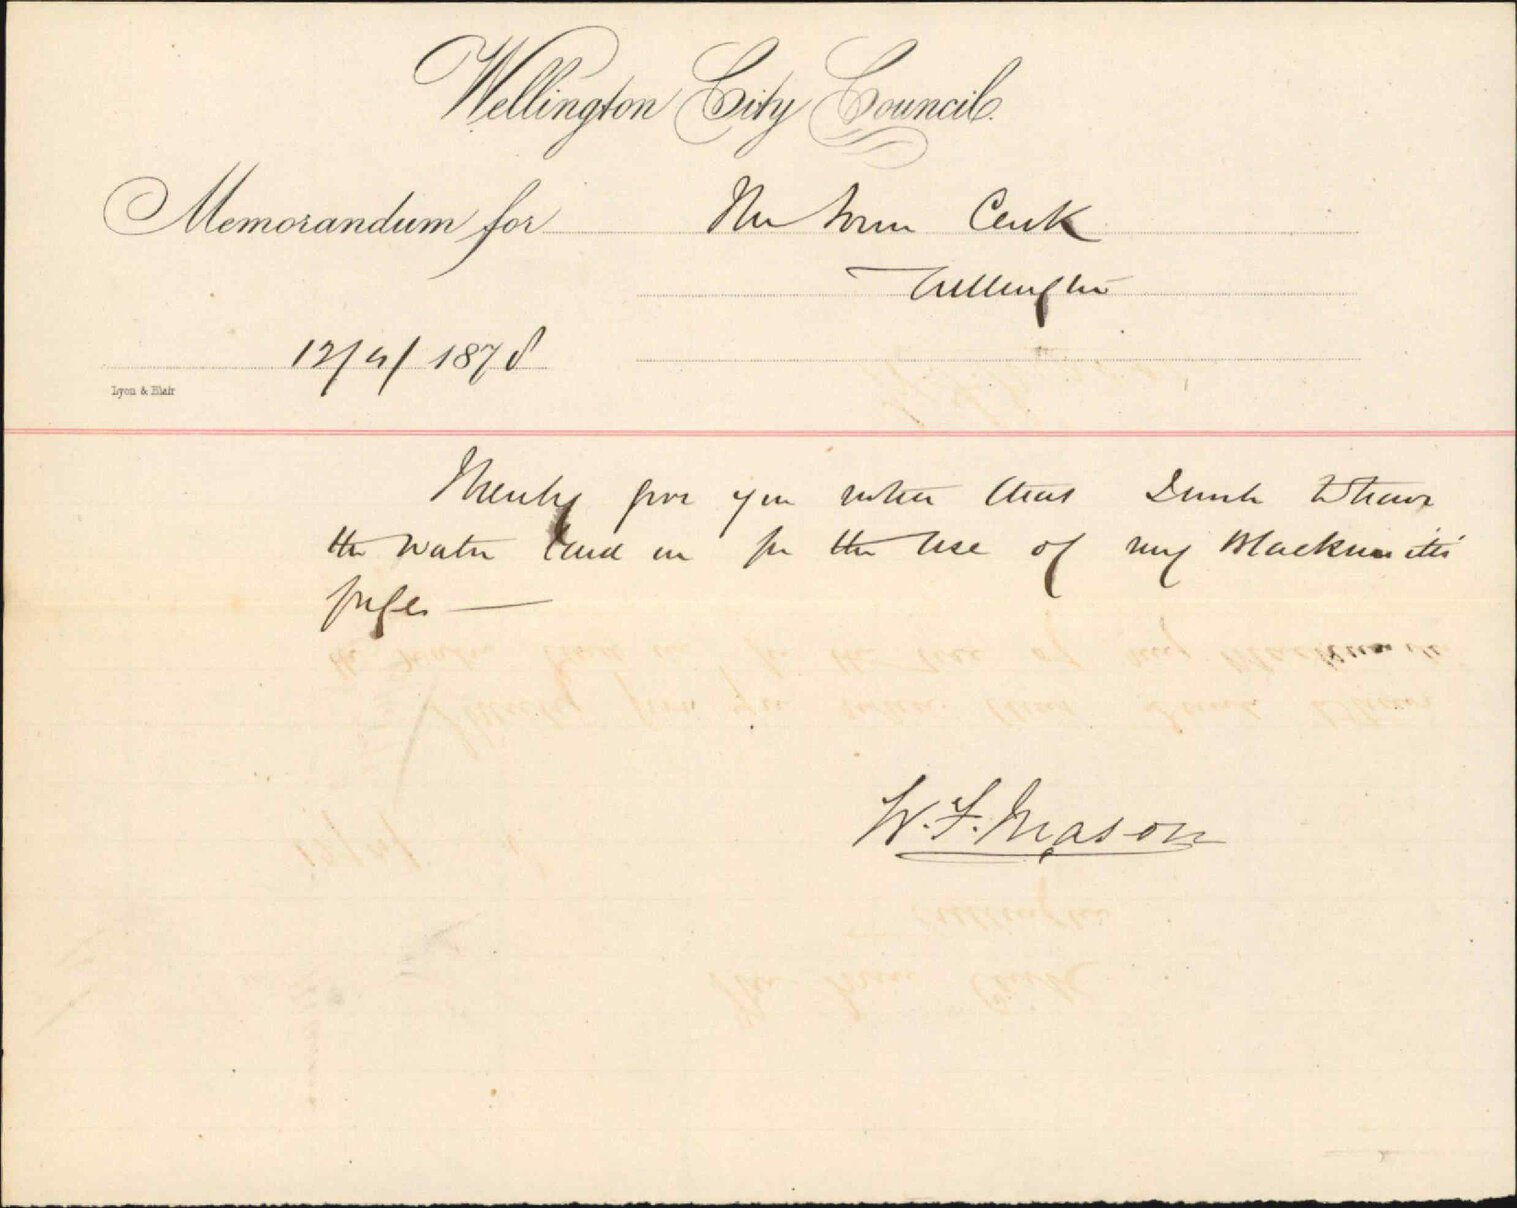 Wellington City Council.
Memorandum for The Town Clerk
Wellington
12/4/1878
Lyon & Blair
I hereby give you notice that I wish to have
the water laid on for the use of my Blacksmiths
forges —
W. F. Mason